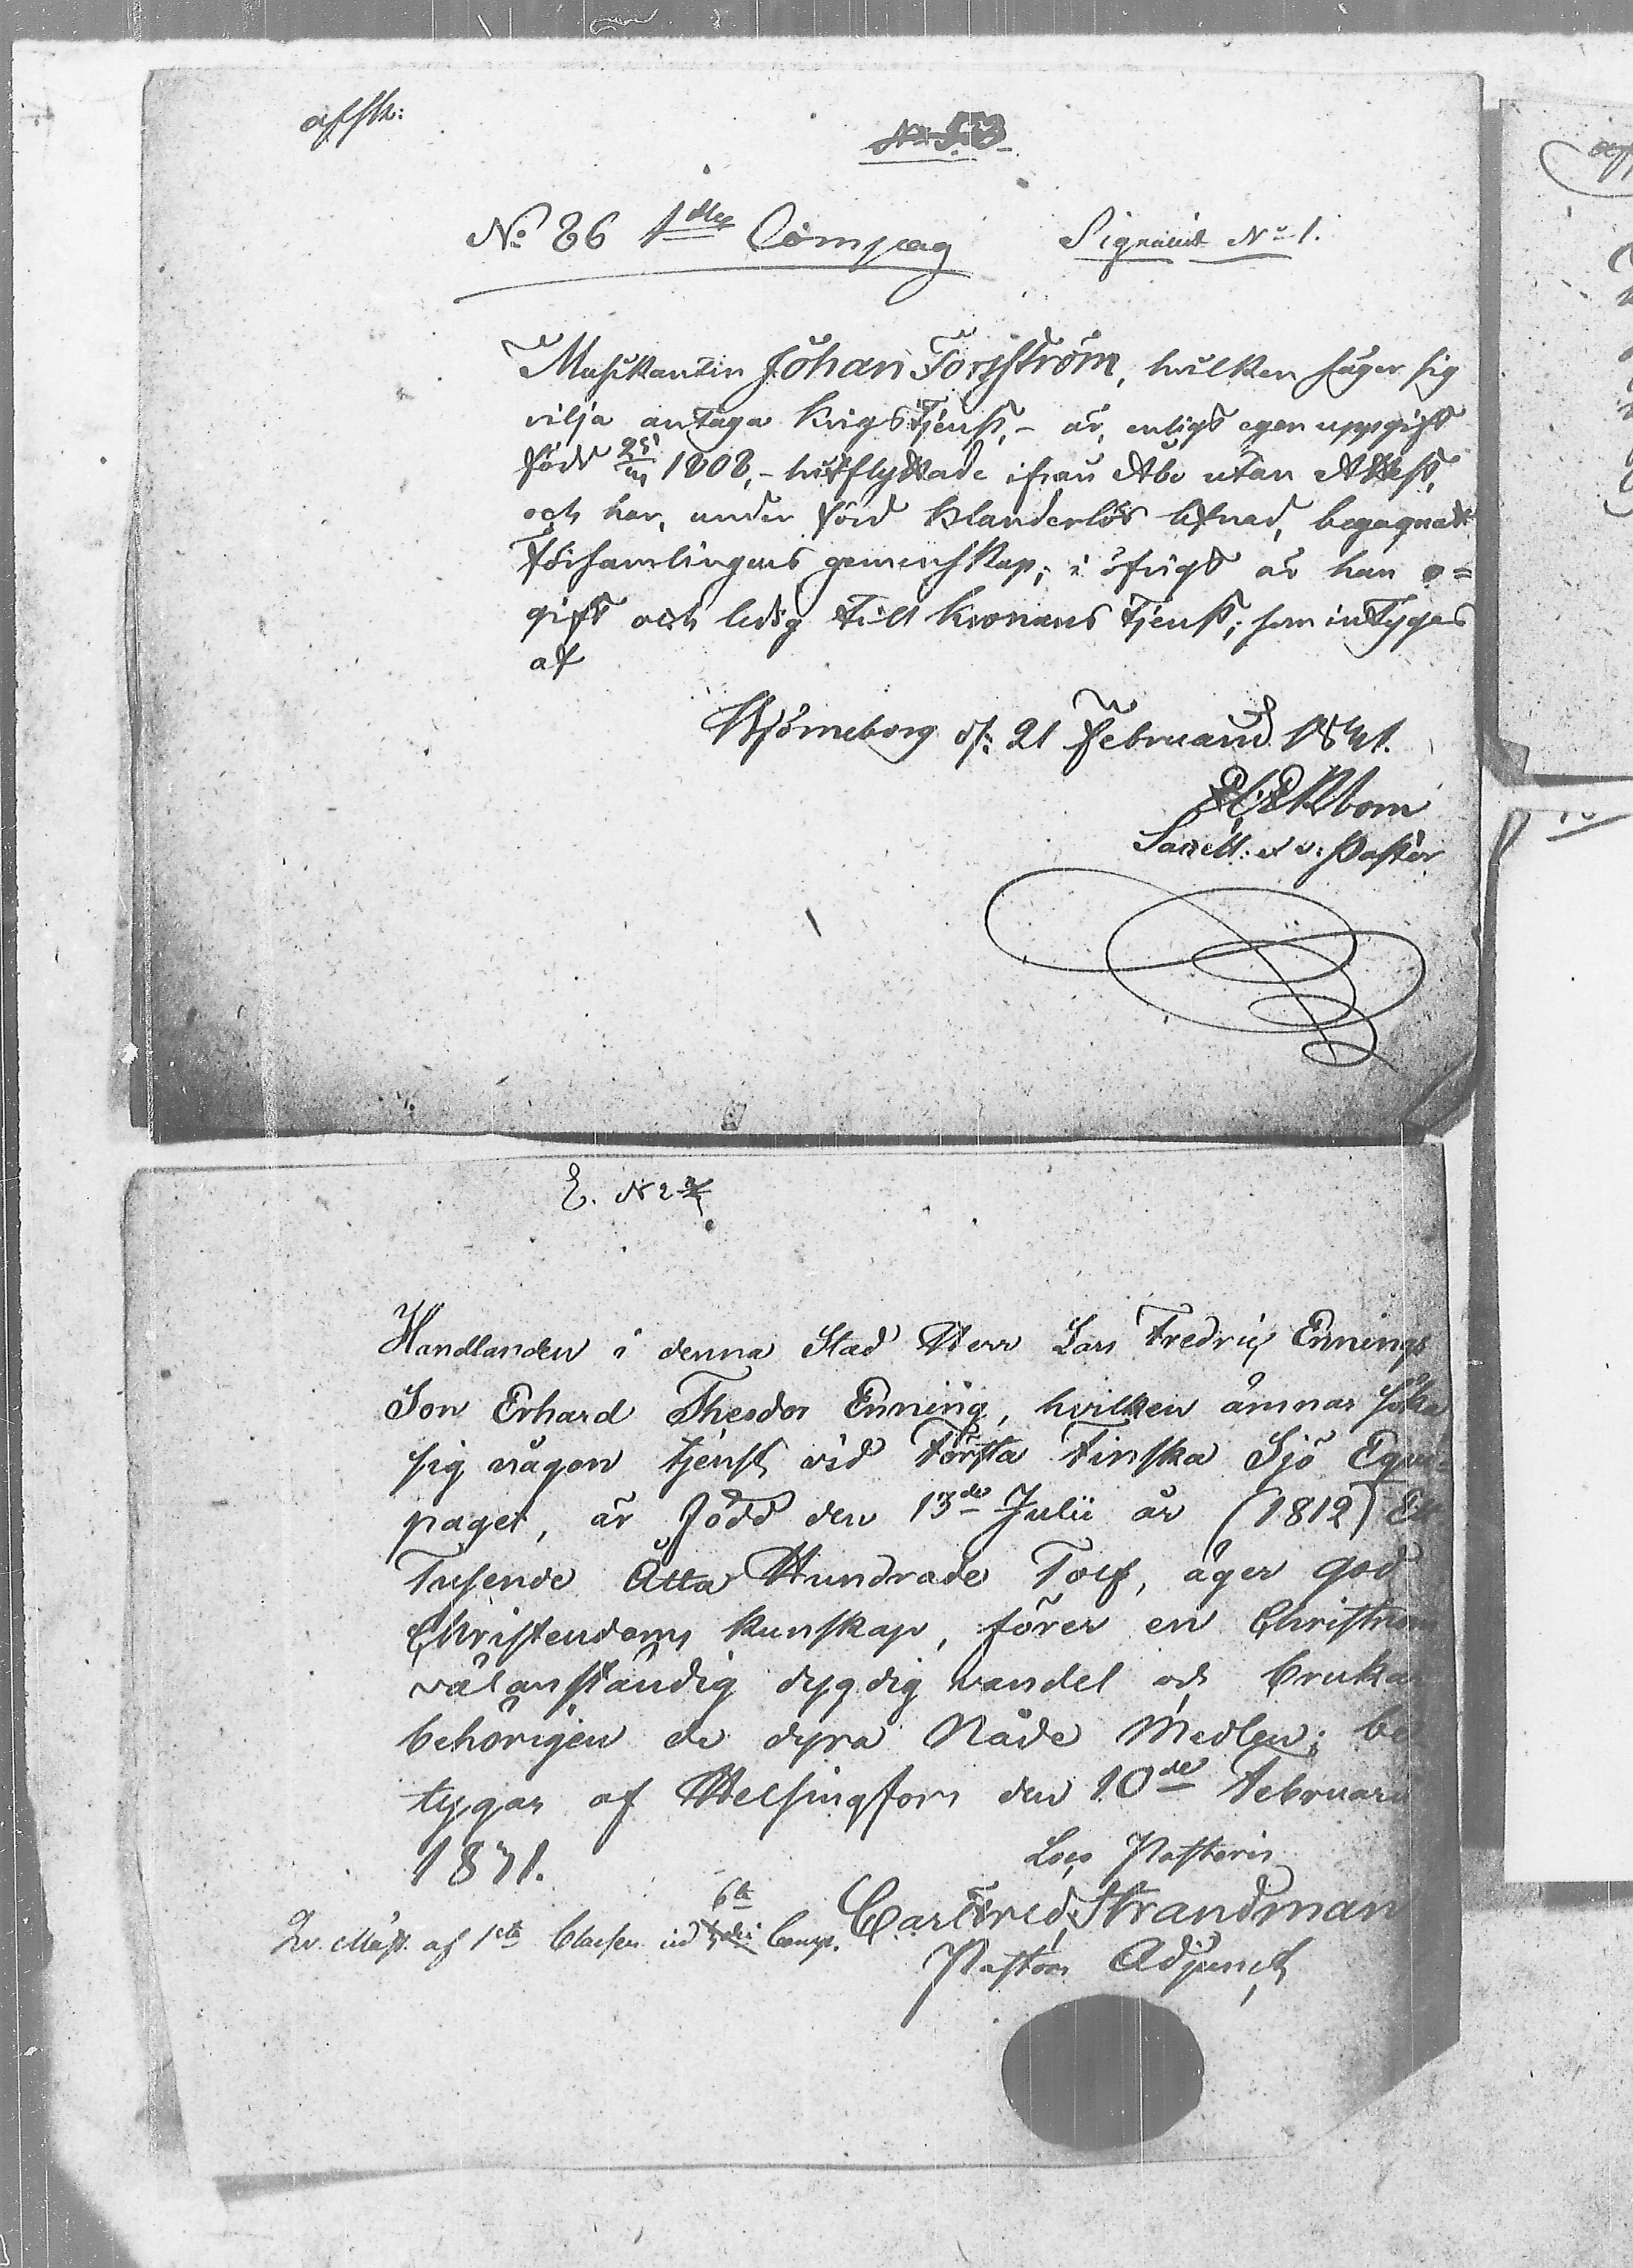 afsk:
No 86 1ste Compag Signalet No 1.
Musikanten Johan Forsström, hvilken säger sig
vilja antaga Krigstjenst, - är, enligt egen uppgift
född 1808, - hitflyttade ifrån Åbo utan Attest,
och har, under förd klanderlös lefnad, begagnat
Församlingens gemenskap; i öfrigt är han o=
gift och ledig till Kronans tjenst; som intygas
af
Björneborg d: 21 Februarii 1831.
Ekbom
Sacell: et v: Pastor
E. N 2
Handlanden i denna Stad Herr Lars Fredric Ennings
Son Erhard Theodor Enning, hvilken ämnar söka
sig någon tjenst vid Första Finska Sjö Equi-
paget, är född den 13de Julii år (1812) Ett
Tusende Åtta Hundrade Tolf, äger god
Christendoms kunskap, förer en Christeen
välanständig dygdig vandel och brukar
behörigen de dyra Nåde Medlen; be
tygar af Helsingfors den 10de Februarii
1831.
Loco Pastoris
Carl Fred. Strandman
Pastors Adjunct
af 1sta Classen vid 6te Comp.